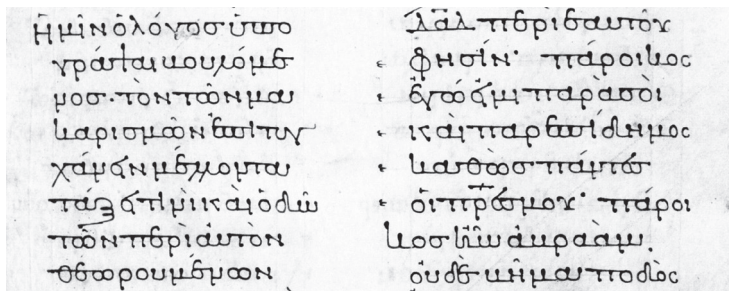 ἡμῖν ὁ λόγος ὑπο
γράψαι
μος τὸν τῶν μα
καρισμῶν ἐπιτυγ
χάνειν μέλλοντα
καὶ
τῶν περὶ αυτον
θεωρουμένων
δᾱδ περὶ ἑαυτοῦ
φησίν· πάροικος
ἐγώ εἰμι παρὰ σοὶ
καὶ παρεπίδημος
καθὼς πάντες
οἱ πρ̅ες μου· πάροι
κος ἦν ἀβραάμ·
οὐδὲ βῆμα ποδὸς